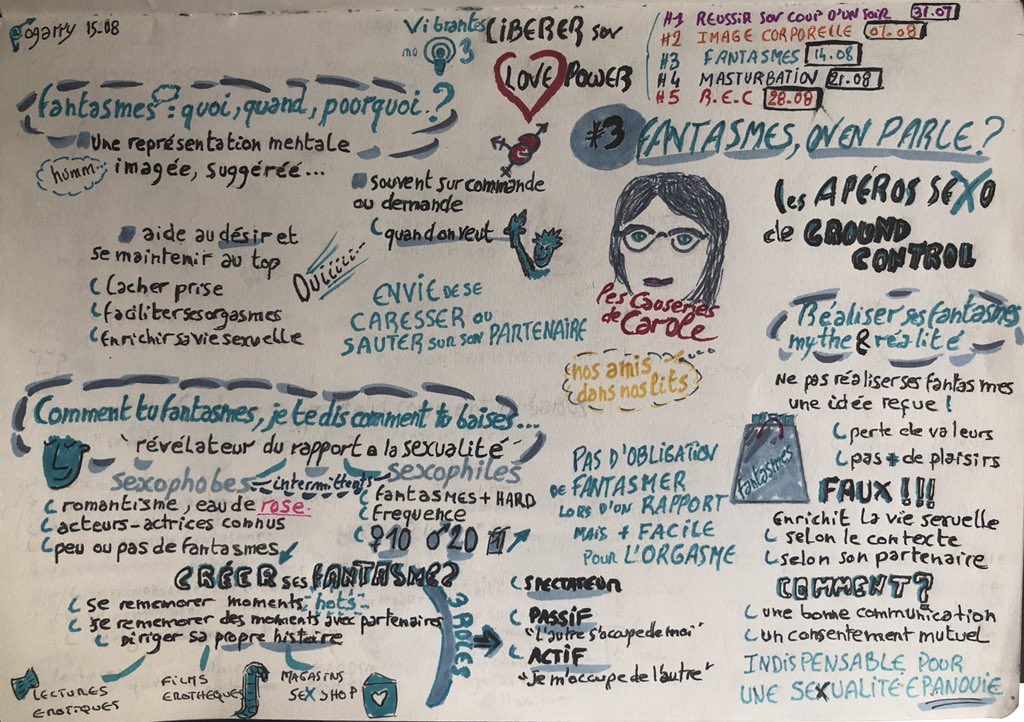 @ogarry 15-08
Vibrantes
no 3
LIBERER son
LOVE POWER
#1 REUSSIR SON COUP D'UN SOIR 31.07
#2 IMAGE CORPORELLE 07.08
#3 FANTASMES 14.08
#4 MASTURBATION 21.08
#5 R.E.C 28.08
fantasmes : quoi, quand, pourquoi ?
une représentation mentale
imagée, suggérée...
humm..
souvent sur commande
ou demande
quand on veut
aide au désir et
se maintenir au top
Lacher prise
faciliter ses orgasmes
Enrichir sa vie sexuelle
Ouiiiii--
ENVIE DE SE
CARESSER OU
SAUTER SUR SON PARTENAIRE
#3 FANTASMES, ON EN PARLE ?
les APÉROS SEXO
de GROUND
CONTROL
Les Causeries
de Carole
nos amis
dans nos lits
Réaliser ses fantasmes
mythe & réalité
Ne pas réaliser ses fantasmes
une idée reçue !
perte de valeurs
pas + de plaisirs
fantasmes
FAUX !!!
Enrichit la vie sexuelle
selon le contexte
selon son partenaire
COMMENT ?
une bonne communication
un consentement mutuel
INDISPENSABLE POUR
UNE SEXUALITE EPANOUIE
Comment tu fantasmes, je te dis comment tu baises...
"révélateur du rapport a la sexualité"
sexophobes - intermittents - sexophiles
romantisme, eau de rose.
acteurs-actrices connus
peu ou pas de fantasmes
fantasmes + HARD
frequence
♀10 ♂20
PAS D'OBLIGATION
DE FANTASMER
LORS D'UN RAPPORT
MAIS + FACILE
POUR L'ORGASME
CRÉER ses FANTASMES ?
se rememorer moments "hots"
se rememorer des moments avec partenaires
Diriger sa propre histoire
LECTURES
EROTIQUES
FILMS
EROTHEQUES
MAGASINS
SEX SHOP
3 ROLES
SPECTATEUR
PASSIF
"L'autre s'occupe de moi"
ACTIF
"Je m'occupe de l'autre"